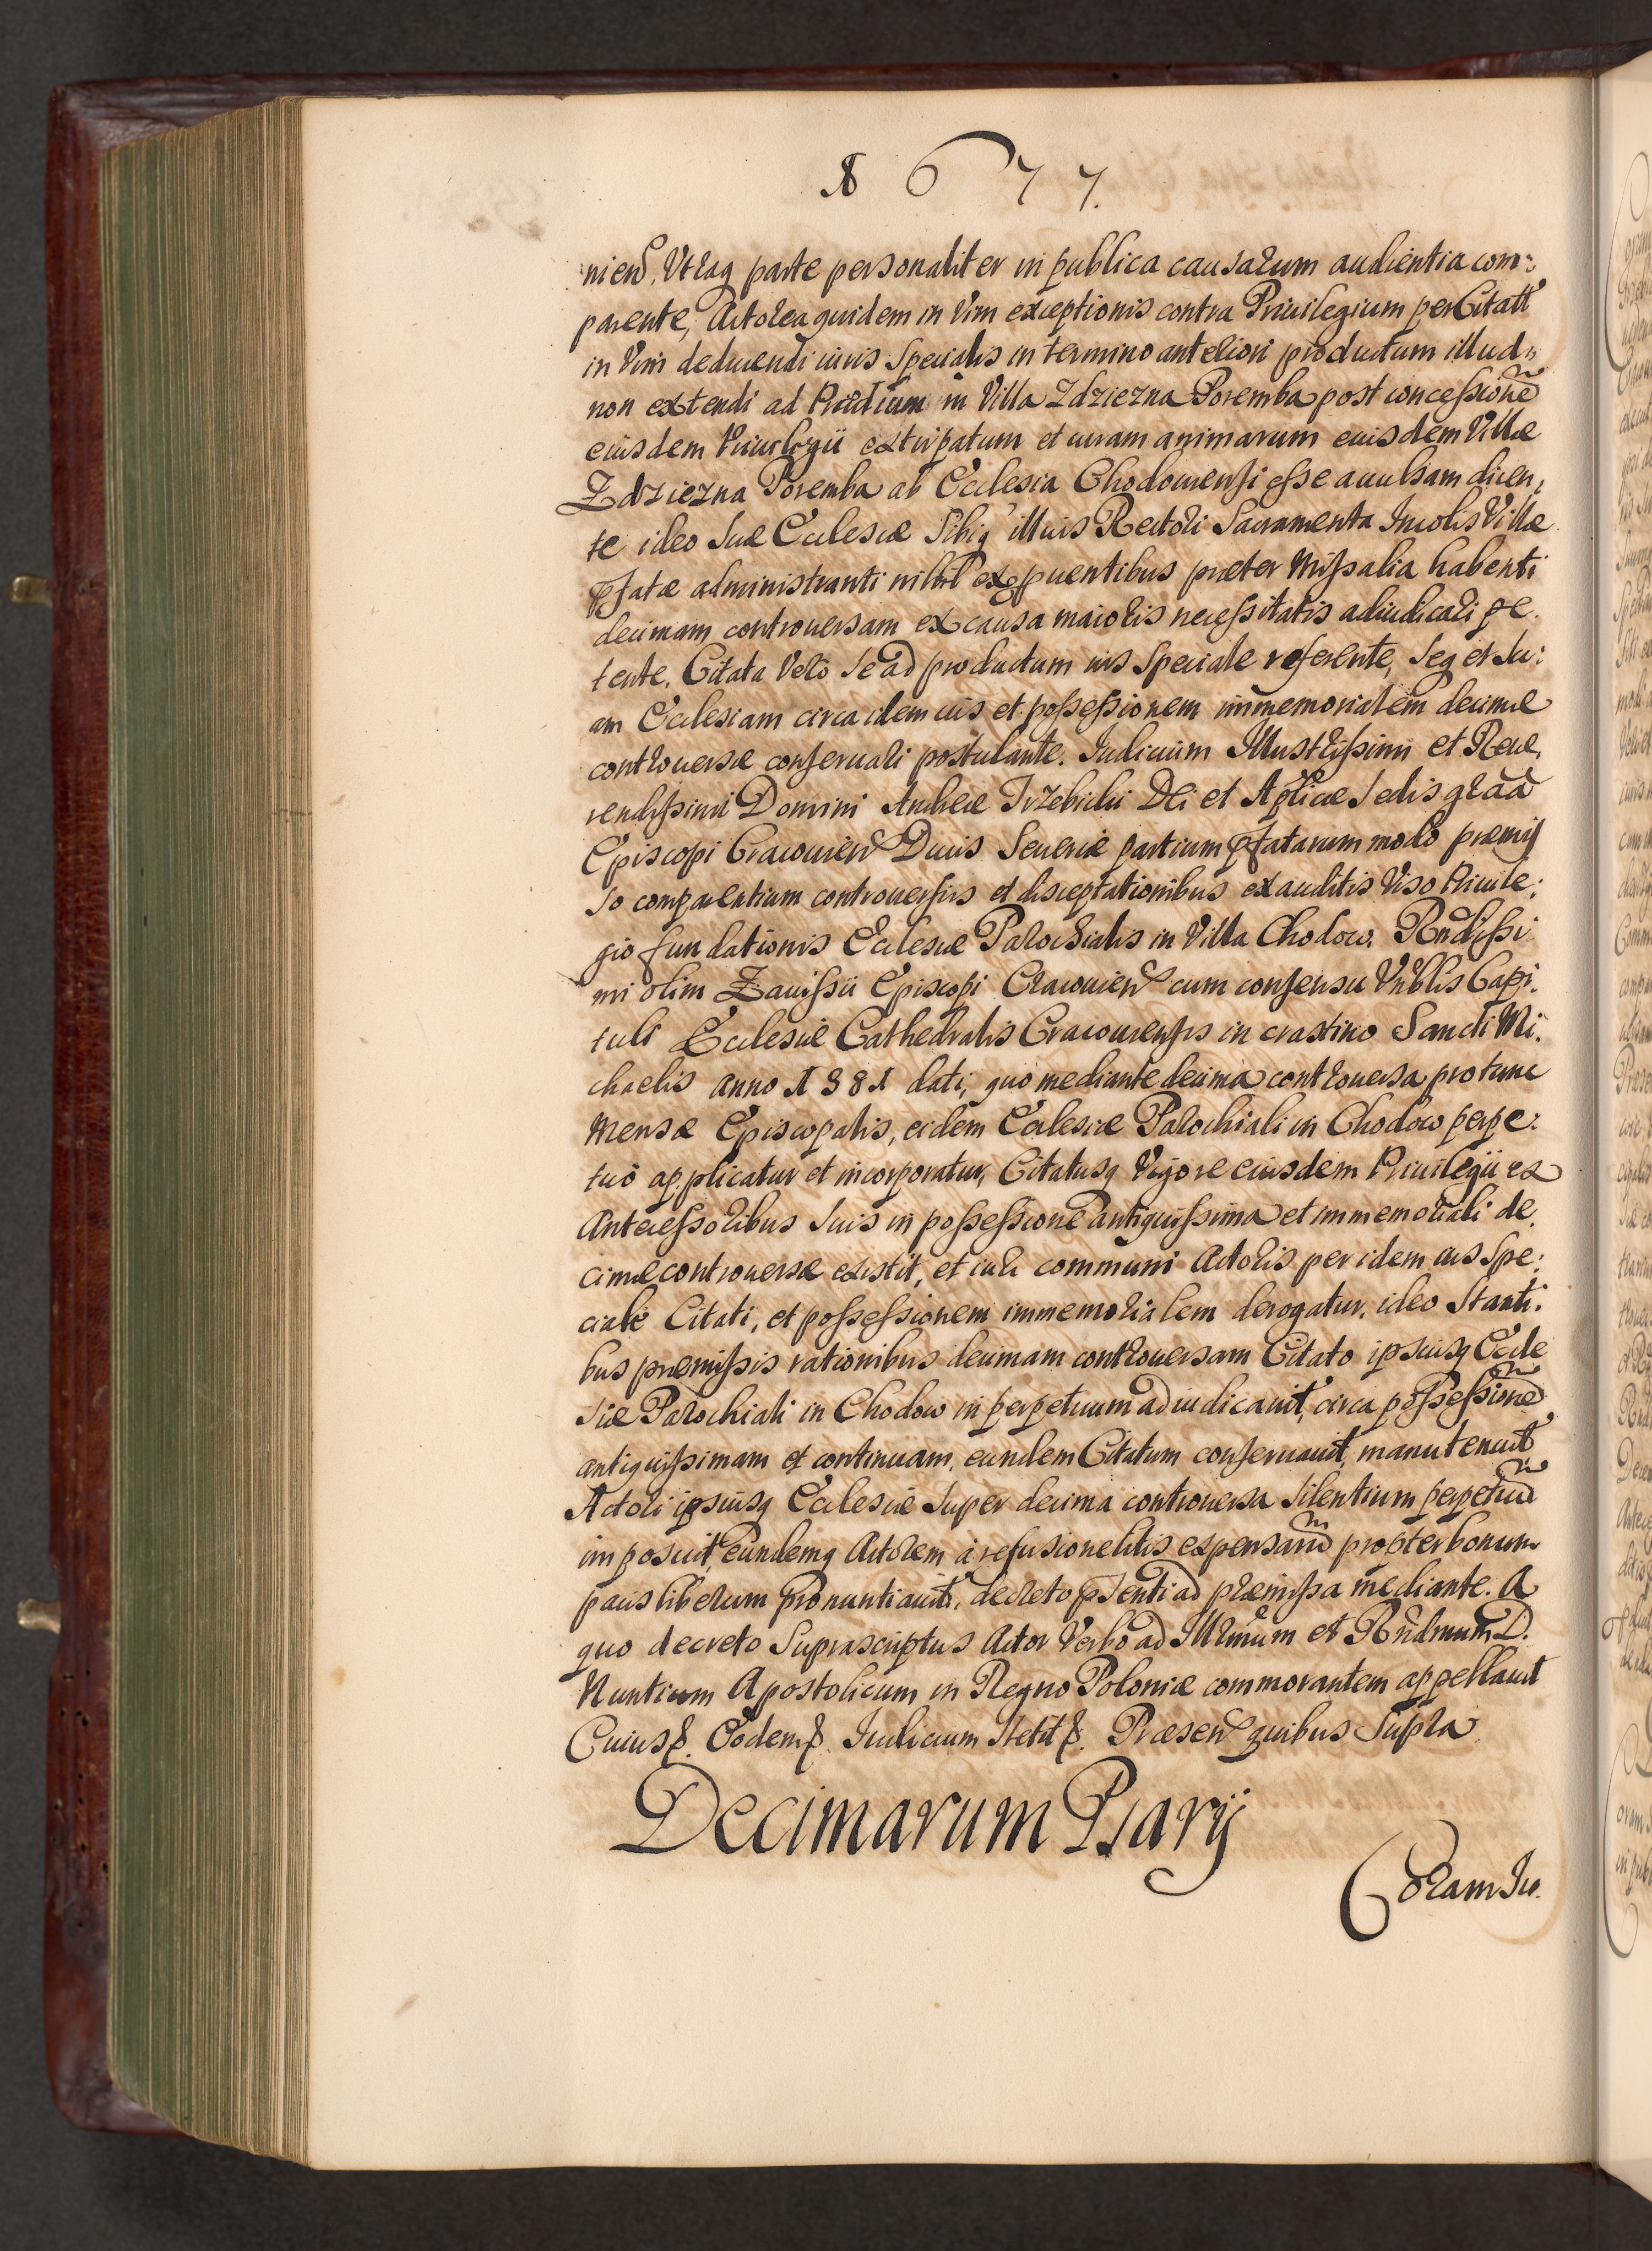 1677.
nien. Utraq parte personaliter in publica causarum audientia com:
parente, Actorea quidem in Vim exceptionis contra Priuilegium per Citatt
in Vim deducendi iuris Specialis in termino anteliori productum illud
non extendi ad Prædium in Villa Zdziezna Poremba post concessione
eiusdem Priuilegii extirpatum et curam animarum eiusdem Villæ
Zdziezna Poremba ab Ecclesia Chodouiensi esse auulsam dicen,
te ideo Suæ Ecclesiæ Sibiq illius Rectori Sacramenta Incolis Villæ
pfatæ administranti nihil ex puentibus præter Missalia habenti
decimam controuersam ex causa maioris necessitatis adiudicari pe
tente. Citata Vero Se ad productum ius Speciale referente, Seq et Su:
am Ecclesiam circa idem ius et possessionem immemorialem decimæ
controuersæ conseruari postulante. Iudicium Illustrissimi et Reue,
rendissimi Domini Andreæ Trzebicki Dei et Aplicæ Sedis graa
Episcopi Cracouien Ducis Seueriæ partium pfatarum modo præmis
so comparentium controuersiis et disceptationibus exauditis Viso Priuile:
gio fundationis Ecclesiæ Parochialis in Villa Chodow. Rndissi
mi olim Zauissii Episcopi Cracouien cum consensu Vnblis Capi:
tuli Ecclesiæ Cathedralis Cracouiensis in crastino Sancti Mi:
chaelis anno 1381 dati, quo mediante decima controuersa pro tunc
Mensæ Episcopalis, eidem Ecclesiæ Parochiali in Chodow perpe:
tuo applicatur et incorporatur, Citatusq Vigore eiusdem Priuilegii ex
Antecessoribus Suis in possessione antiquissima et immemoriali de
cimæ controuersæ existit, et iuri communi Actoris per idem ius Spe:
ciale Citati, et possessionem immemorialem derogatur. ideo Stanti:
bus præmissis rationibus decimam controuersam Citato ipsiusq Eccle
siæ Parochiali in Chodow in perpetuum adiudicauit, circa possessione
antiquissimam et continuam, eundem Citatum conseruauit, manutenuit
Actori ipsiusq Ecclesiæ Super decima controuersa Silentium perpetuu
imposuit, eundemq Actorem a refusione litis expensaru propter bonum
pacis liberum pronuntiauit, decreto psenti ad præmissa mediante. A
quo decreto Suprascriptus Actor Verbo ad Illmum et Rndmum D.
Nuntium Apostolicum in Regno Poloniæ commorantem appellauit
Cuius. Eodem. Iudicium Stetit. Præsen quibus Supra
Decimarum Psarÿ
Coram Iu.